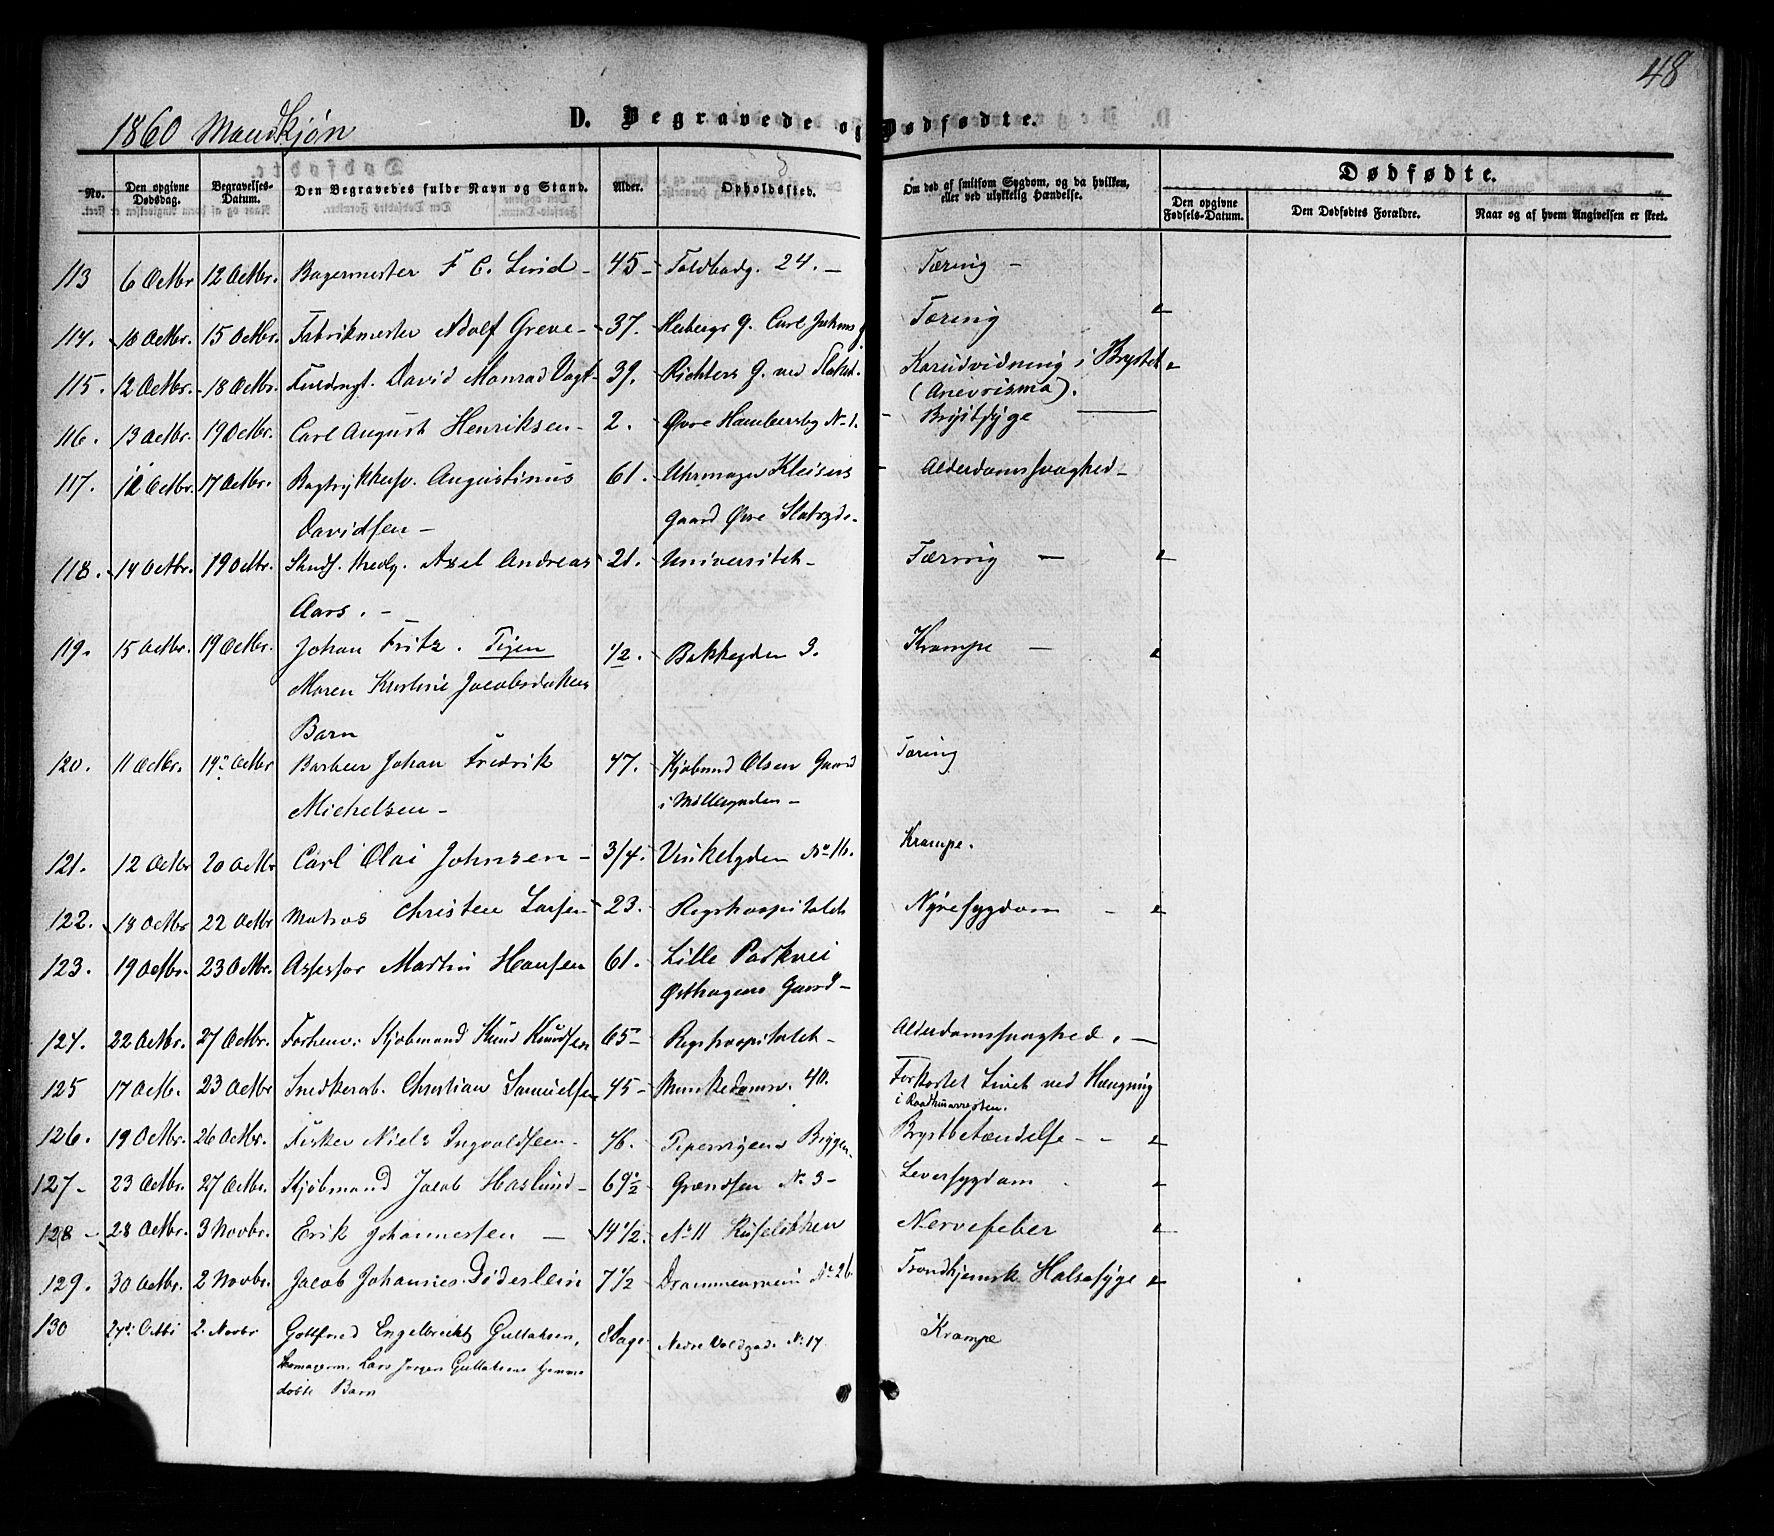 48
1860 Mandkjøn
D. Begravede og Dødfødte.
No. Den opgivne Dødsdag. Begravelses-Datum. Den Begravedes fulde Navn og Stand. Alder. Opholdssted. Om død af smitsom Sygdom, og da hvilken, eller ved ulykkelig Hændelse. Dødfødte.
Den opgivne Fødsels-Datum. Den Dødfødtes Forældre. Naar og af hvem Angivelsen er skeet.
113 6 Octbr 12 Octbr. Bagermester F. C. Lind - 45 - Toldbodg. 24. - Tæring -
114. 10 Octbr. 15 Octbr. Fabrikmester Adolf Greve - 37. Carl Johans g Tæring
115. 12 Octbr. 18 Octbr. David Monrad Vogt 39. Richters G. ved Slottet. Karudvidning i Brystet
(Anevrisma).
116. 13 Octbr. 19 Octbr. Carl August Henriksen - 2. Øvre Hammersbg No 1. Brystsyge
117. 12 Octbr. 17 Octbr. Bogtrykkersv. Augustinus 61. Uhrmager Kleisers Alderdomssvaghed -
Davidsen - Gaard Øvre Slotsgd.
118. 14 Octbr. 19 Octbr. Stud. Axel Andreas 21. Universitet - Tæring -
Aars. -
119. 15 Octbr. 19 Octbr. Johan Fritz. Pigen 1/2. Bakkegden 3. Krampe -
Maren Kristine Jacobsdatters
Barn
120. 11 Octbr. 19 Octbr Barber Johan Fredrik 47. Kjøbmd Olsen Gaard Tæring
Michelsen - i Møllergaden -
121. 12 Octbr 20 Octbr Carl Olai Johnsen - 3/4. Vinkelgden No 16. Krampe.
122. 18 Octbr 22 Octbr Matros Christen Larsen 23. Rigshospitalet Nyresygdom -
123. 19 Octbr. 23 Octbr. Assessor Martin Hansen 61. Lille Parkvei
Østhagens Gaard -
124. 22 Octbr. 27 Octbr. Forhenv. Kjøbmand Knud Knudsen 65 - Rigshospitalet - Alderdomssvaghed. -
125 17 Octb. 23 Octbr Snedkerarb. Christian Samuelsen 45 - Munkedamsv. 40. Forkortet Livet ved Hængning
i Raadhusarresten.
126. 19 Octbr. 26 Octbr. Fisker Niels Ingvaldsen - 46. Pipervigens Bryggen Brystbetændelse -
127 - 23 Octbr. 27 Octbr. Kjøbmand Jacob Haslund - 69 1/2 Grændsen No 3 - Leversygdom
128 - 28 Octbr. 3 Novbr. Erik Johannessen - 14 1/2. No 11 Ruseløkken Nervefeber
129. 30 Octbr. 2 Novbr. Jacob Johannes Döderlein 7 1/2 Drammensveien No 26 Trondhjemsk Halssyge
130 27 Octbr 2. Novbr Gottfried Engelbrecht Gulliksen, 8 Dage Nedre Voldgade No 17. Krampe
Skomagerm. Lars Jørgen Gulliksens hjemme
døbte Barn